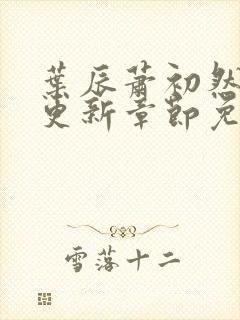 葉辰蕭初然
更新章節免
雪落十二